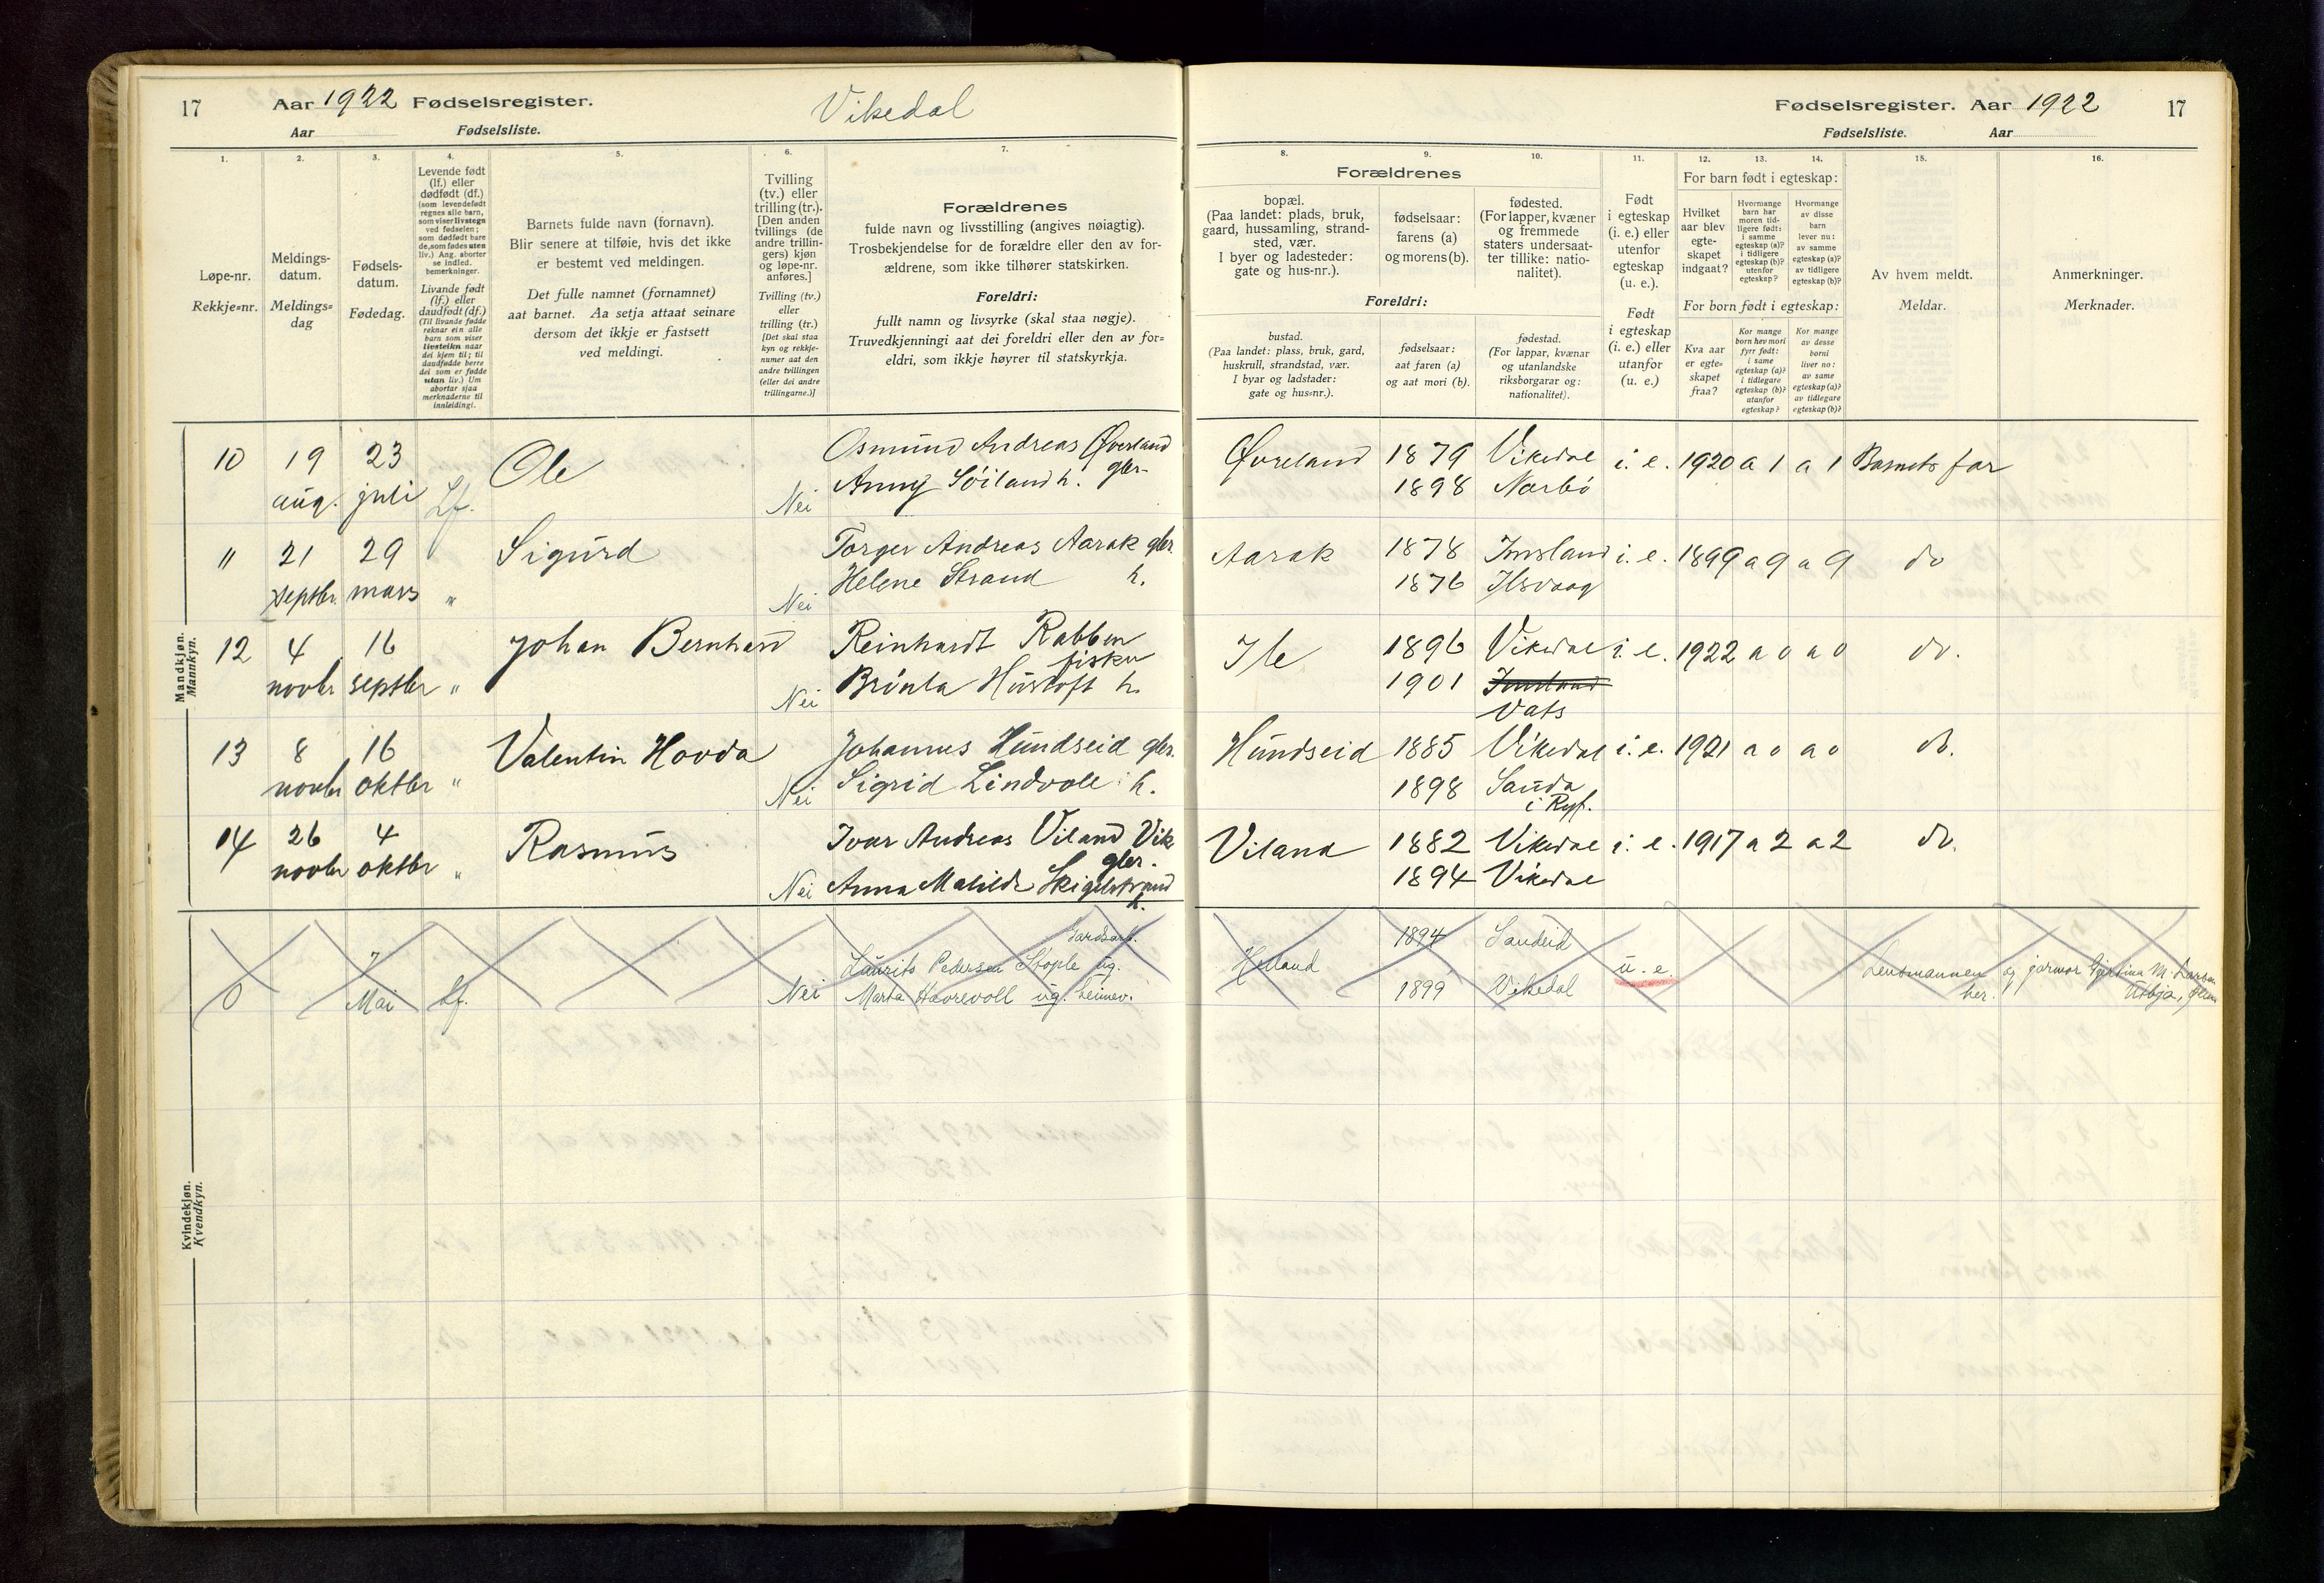 17 Aar 1922 Fødselsregister. Vikedal
Aar Fødselsliste.
Fødselsregister. Aar 1922 17
Fødselsliste. Aar
1.
Løpe-nr.
Rekkje=nr.
2.
Meldings-
datum.
Meldings=
dag
3.
Fødsels-
datum.
Fødedag.
4.
Levende født
(lf.) eller
dødfødt (df.)
(som levendefødt
regnes alle barn,
som viser livstegn
ved fødselen;
som dødfødt bare
de, som fødes uten
liv.) Ang. aborter
se indled.
bemerkninger.
Livande født
(lf.) eller
daudfødt (df.)
(Til livande fødde
reknar ein alle
barn som viser
livsteikn naar
dei kjem til; til
daudfødde berre
dei som er fødde
utan liv.) Um
abortar sjaa
merknaderne til
innleidingi.
5.
Barnets fulde navn (fornavn).
Blir senere at tilføie, hvis det ikke
er bestemt ved meldingen.
Det fulle namnet (fornamnet)
aat barnet. Aa setja attaat seinare
dersom det ikkje er fastsett
ved meldingi.
6.
Tvilling
(tv.) eller
trilling (tr.).
[Den anden
tvillings (de
andre trillin-
gers) kjøn
og løpe-nr.
anføres.]
Tvilling (tv.)
eller
trilling (tr.)
[Det skal staa
kyn og rekkje-
numer aat den
andre tvillingen
(eller dei andre
trillingarne.)]
7.
Forældrenes
fulde navn og livsstilling (angives nøiagtig).
Trosbekjendelse for de forældre eller den av for-
ældrene, som ikke tilhører statskirken.
Foreldri:
fullt namn og livsyrke (skal staa nøgje).
Truvedkjenningi aat dei foreldri eller den av for=
eldri, som ikkje høyrer til statskyrkja.
Forældrenes
8.
bopæl.
(Paa landet: plads, bruk,
gaard, hussamling, strand-
sted, vær.
I byer og ladesteder:
gate og hus-nr.).
9.
fødselsaar:
farens (a)
og morens (b).
10.
fødested.
(For lapper, kvæner
og fremmede
staters undersaat-
ter tillike: natio-
nalitet).
Foreldri:
bustad.
(Paa landet: plass, bruk, gard,
huskrull, strandstad, vær.
I byar og ladstader:
gate og hus=nr.).
fødselsaar:
aat faren (a)
og aat mori (b).
fødestad.
(For lappar, kvænar
og utanlandske
riksborgarar og:
nationalitet).
11.
Født
i egteskap
(i. e.) eller
utenfor
egteskap
(u. e.).
Født
i egteskap
(i. e.) eller
utanfor
(u. e.)
12. 13. 14.
For barn født i egteskap:
Hvilket
aar blev
egte-
skapet
indgaat?
Hvormange
barn har
moren tid-
ligere født:
i samme
egteskap (a)?
i tidligere
egteskap (b)?
utenfor
egteskap?
Hvormange
av disse
barn
lever nu:
av samme
egteskap (a)?
av tidligere
egteskap (b)?
For born født i egteskap:
Kva aar
er egte=
skapet
fraa?
Kor mange
born hev mori
fyrr født:
i same
egteskap (a)?
i tidlegare
egteskap (b)?
utanfor
egteskap?
Kor mange
av desse
borni
liver no:
av same
egteskap (a)?
av tidlegare
egteskap (b)?
15.
Av hvem meldt.
Meldar.
16.
Anmerkninger.
Merknader.
Mandkjøn.
Mannkyn.
10 19 23 Ole Osmund Andreas Øverland Øvreland 1879 Vikedal i. e. 1920 a 1 a 1 Barnets far
aug. juli Lf. Nei Anny Söiland h. gbr. 1898 Nærbö
" 21 29 Sigurd Torger Andreas Aarak gbr. Aarak 1878 Imsland i. e. 1899 a 9 a 9 do
septbr. mars " Nei Helene Strand h. 1876 Ilsvaag
12 4 16 Johan Bernhard Reinhardt Rabben fisker Ile 1896 Vikedal i. e. 1922 a 0 a 0 do.
novbr septbr " Nei h. 1901 Imsland
Vats
13 8 16 Valentin Hovda Johannes Hundseid gbr. Hundseid 1885 Vikedal i. e. 1921 a 0 a 0 do.
novbr oktbr " Nei Sigrid Lindvoll h. 1898 Sauda
i Ryf.
14 26 4 Rasmus Ivar Andreas Viland Vik Viland 1882 Vikedal i. e. 1917 a 2 a 2 do.
novbr oktbr " gbr.
Nei Anna Matilde h. 1894 Vikedal
0 7 Jordarb.
Laurits Pedersen Stople ug. 1894 Sandeid u. e. Lensmannen og jormor
Mai Lf. Nei Marta ug. heimev. 1899 Vikedal her.
Kvindekjøn.
Kvendkyn.